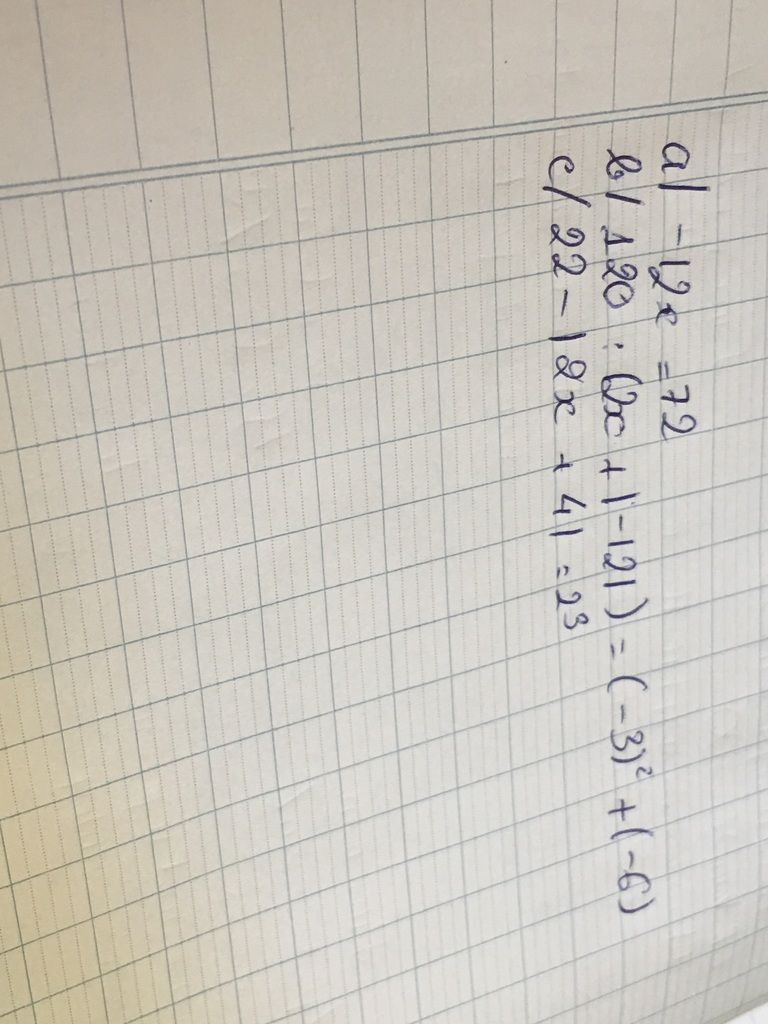 a/ -12x = 72
b/ 120 : (2x + |-12|) = (-3)² + (-6)
c/ 22 - |2x + 4| = 2³